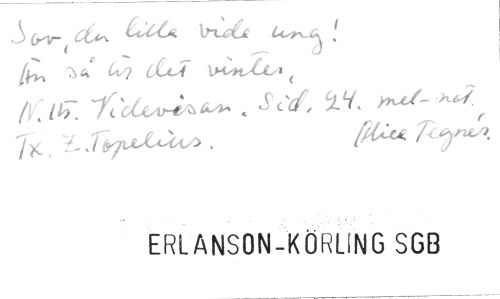 Sov, du lilla vide ung!
Än så är det vinter,
N. 15. Videvisan. Sid. 24. mel-not.
Tx. Z. Topelius. Alice Tegnér.
ERLANSON-KÖRLING SGB